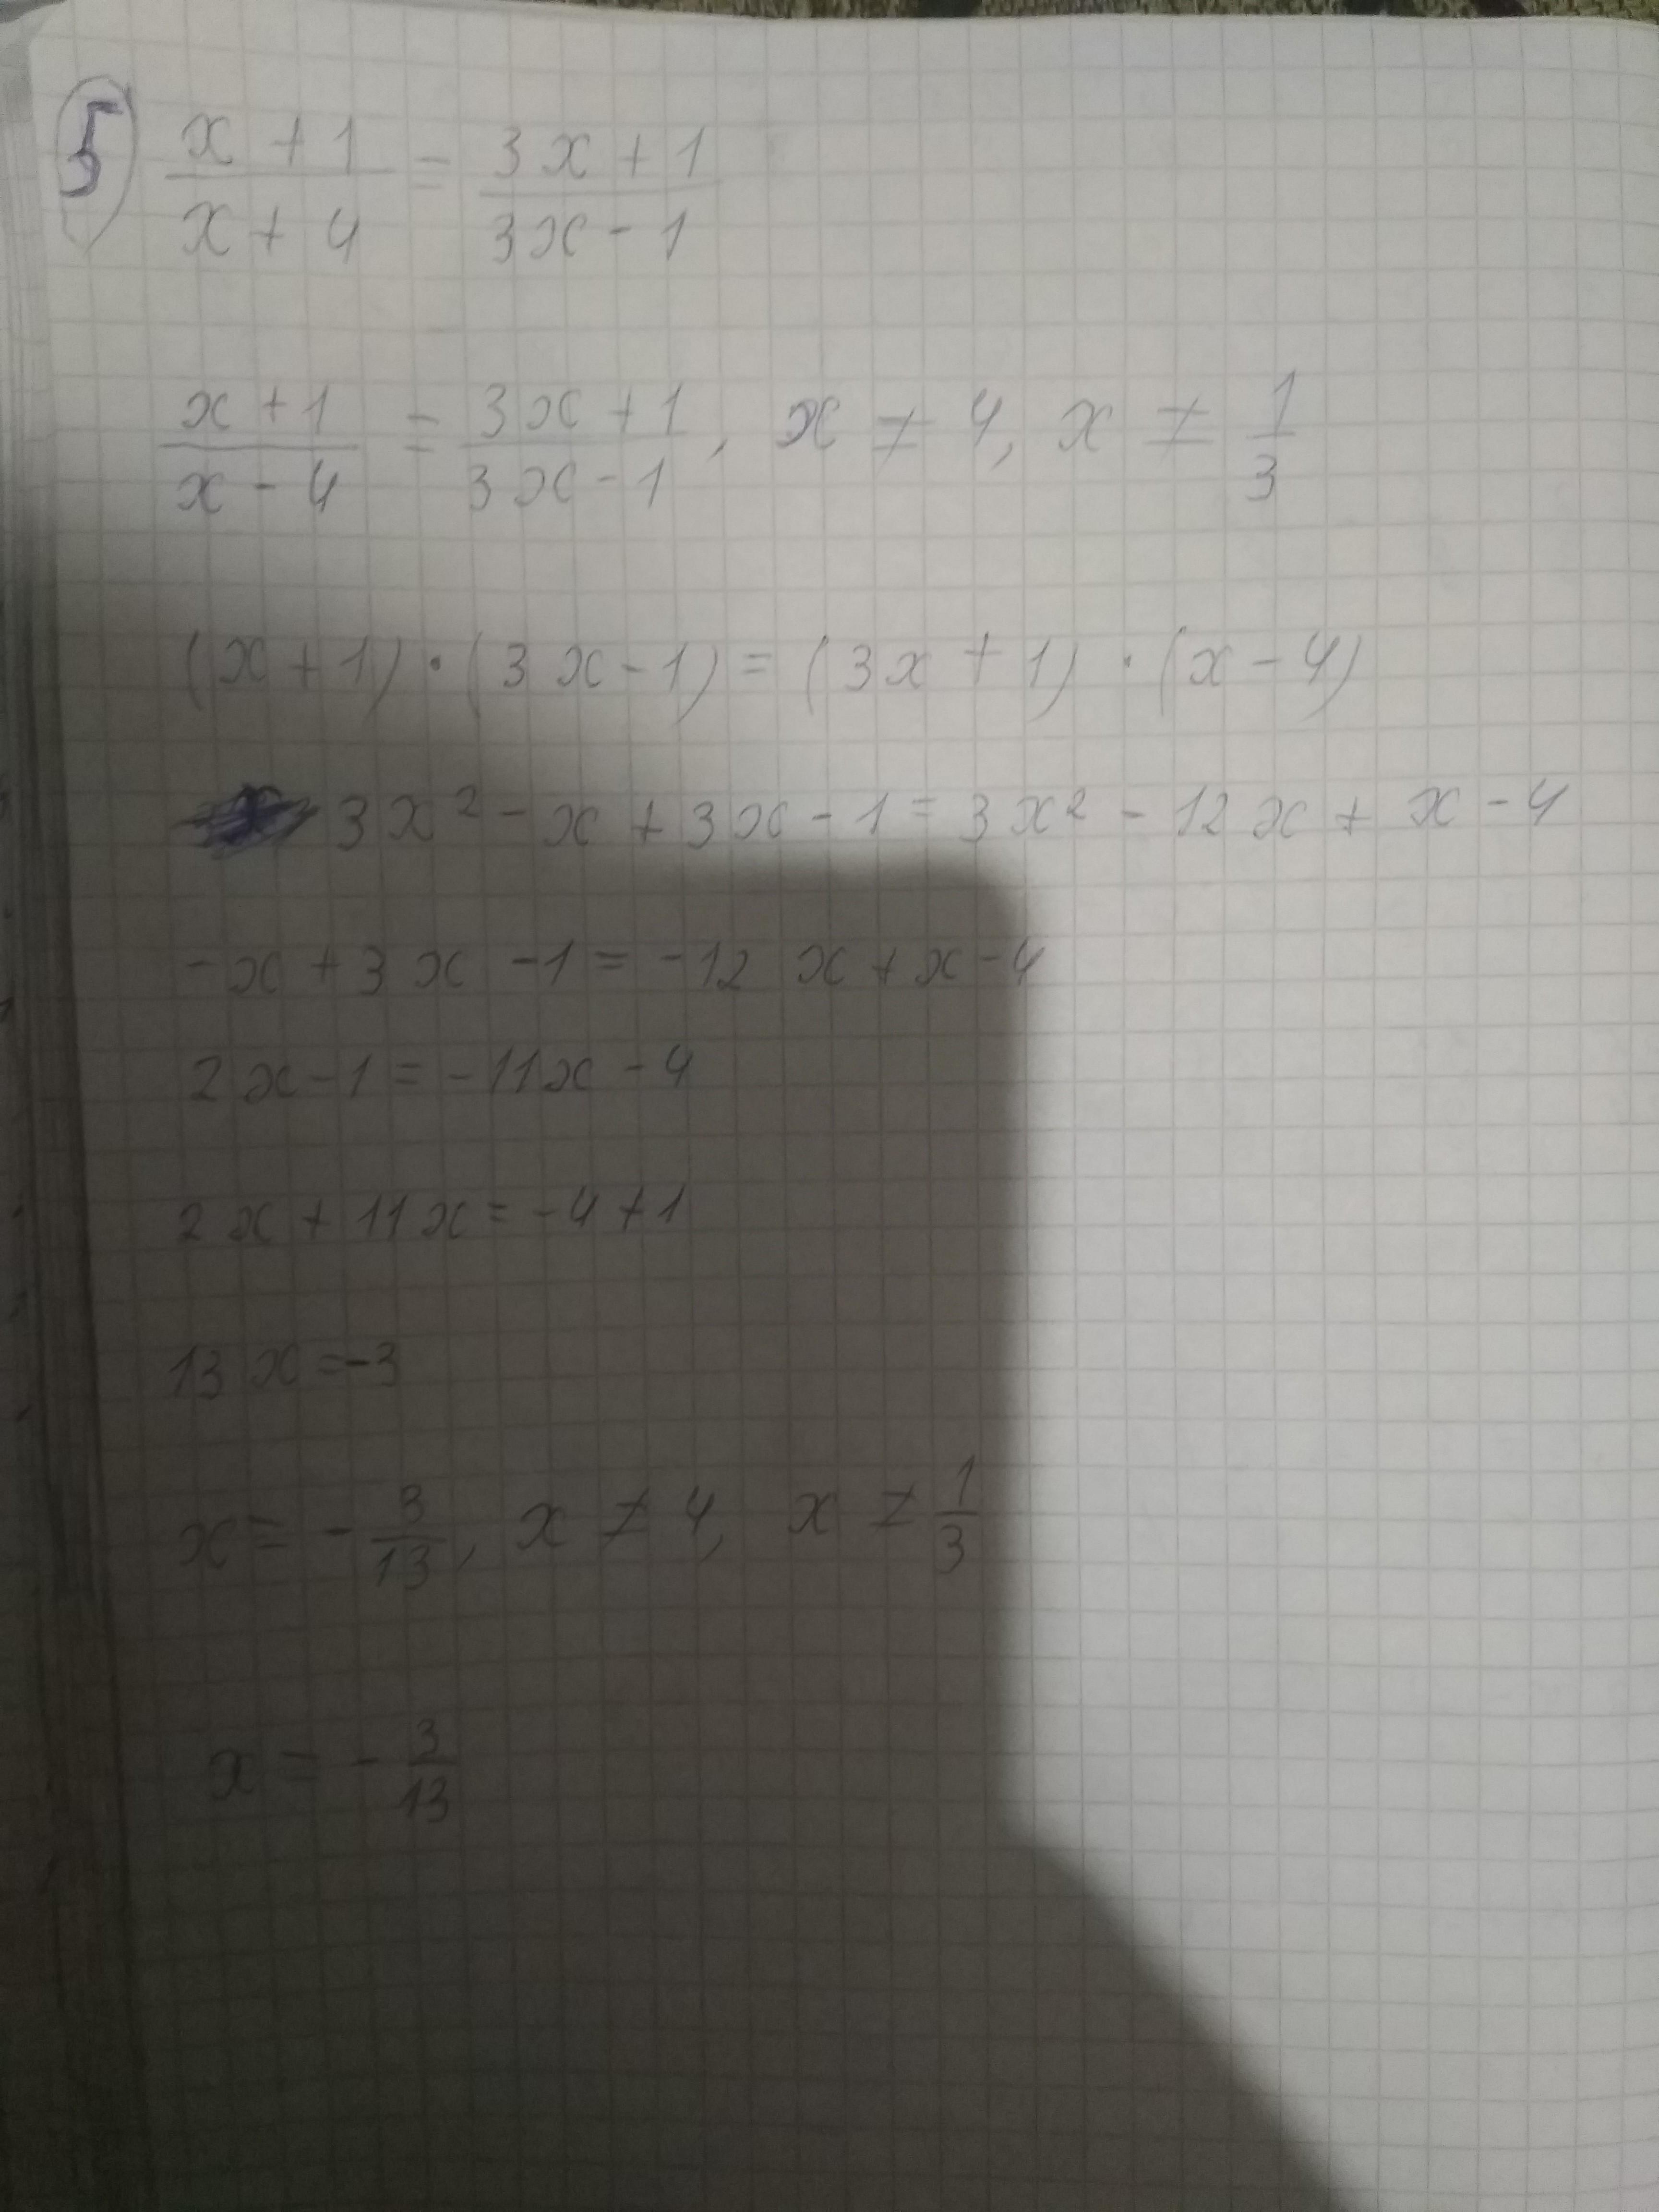 5) x + 1 / x + 4 = 3x + 1 / 3x - 1
x + 1 / x - 4 = 3x + 1 / 3x - 1, x ≠ 4, x ≠ 1/3
(x + 1) · (3x - 1) = (3x + 1) · (x - 4)
3x² - x + 3x - 1 = 3x² - 12x + x - 4
-x + 3x - 1 = -12x + x - 4
2x - 1 = -11x - 4
2x + 11x = -4 + 1
13x = -3
x = - 3/13, x ≠ 4, x ≠ 1/3
x = - 3/13